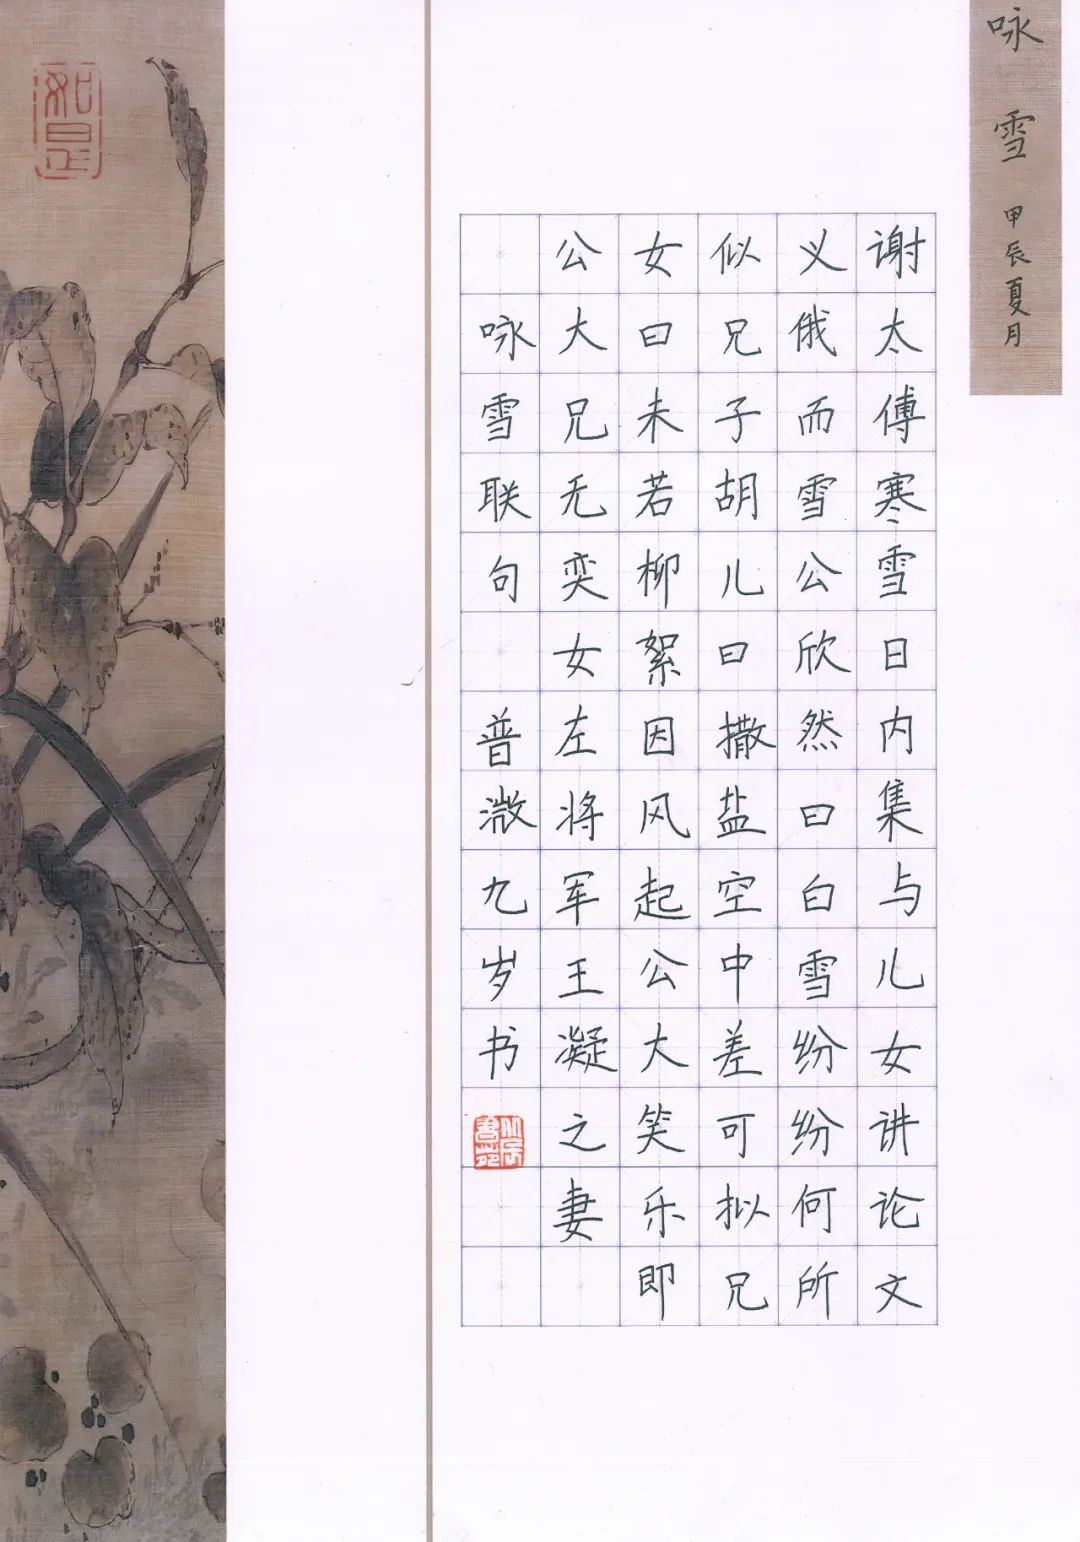 咏雪 甲辰夏月
谢太傅寒雪日内集与儿女讲论文
义俄而雪公欣然曰白雪纷纷何所
似兄子胡儿曰撒盐空中差可拟兄
女曰未若柳絮因风起公大笑乐即
公大兄无奕女左将军王凝之妻
咏雪联句 普溦九岁书